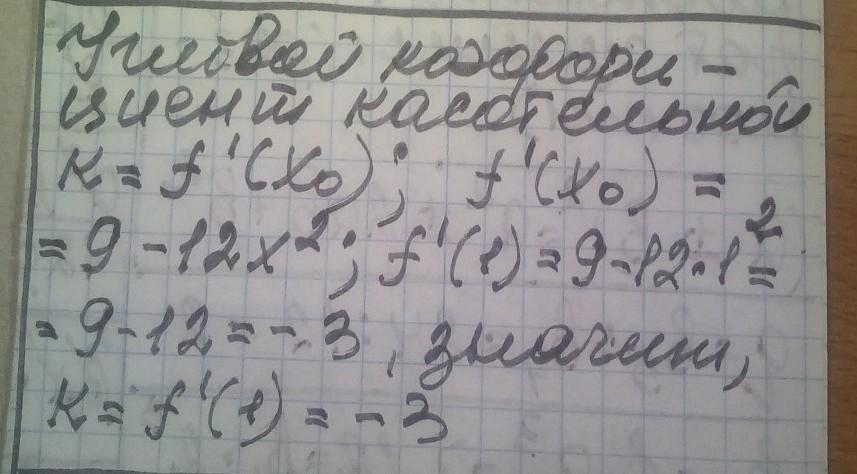 Угловой коэффи-
циент касательной
K = f'(x₀); f'(x₀) =
= 9 - 12x²; f'(1) = 9 - 12·1² =
= 9 - 12 = - 3, значит,
K = f'(1) = - 3